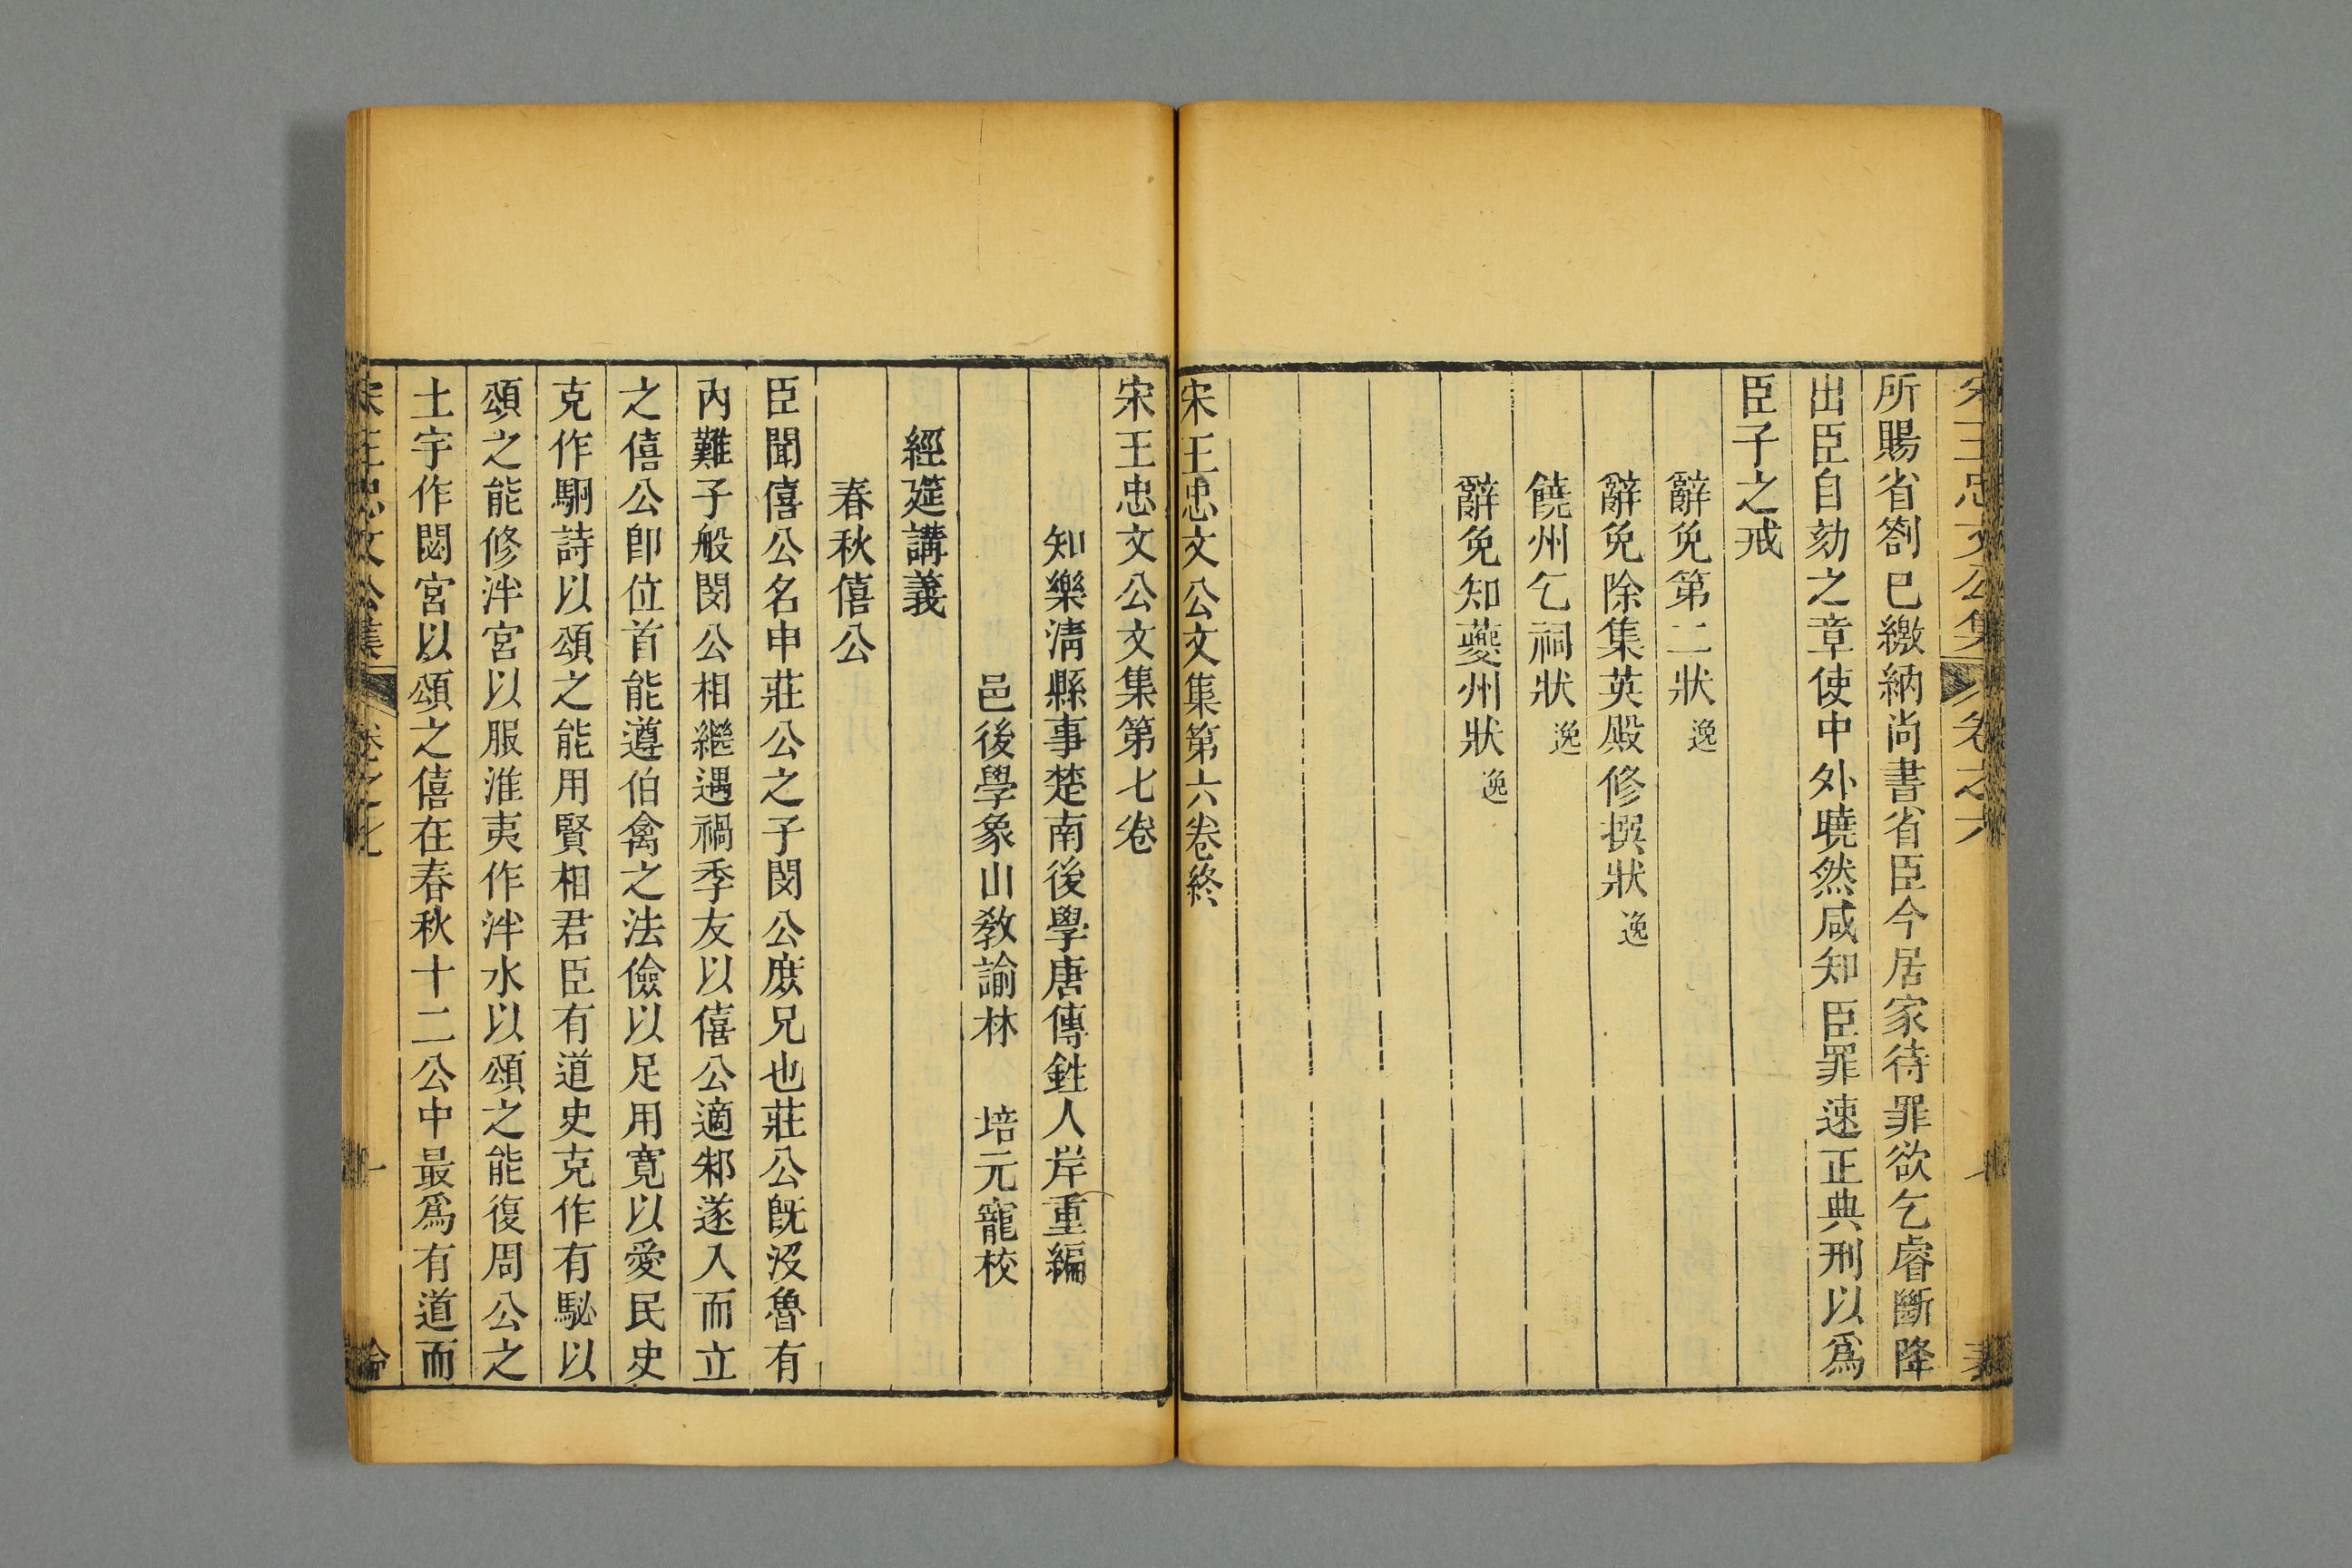 宋王忠文公集 卷之六
所賜省劄已繳納尚書省臣今居家待罪欲乞睿斷降
出臣自劾之章使中外曉然咸知臣罪速正典刑以爲
臣子之戒
辭免第二狀 逸
辭免除集英殿修撰狀 逸
饒州乞祠狀 逸
辭免知夔州狀 逸
宋王忠文公文集第六卷終
宋王忠文公文集第七卷
知樂清縣事楚南後學唐傳鉎人岸重編
邑後學象山敎諭林 培元寵校
經筵講義
春秋僖公
臣聞僖公名申莊公之子閔公庶兄也莊公旣沒魯有
內難子般閔公相繼遇禍季友以僖公適邾遂入而立
之僖公卽位首能遵伯禽之法儉以足用寬以愛民史
克作駉詩以頌之能用賢相君臣有道史克作有駜以
頌之能修泮宮以服淮夷作泮水以頌之能復周公之
土宇作閟宮以頌之僖在春秋十二公中最爲有道而
宋王忠文公集 卷之七 一